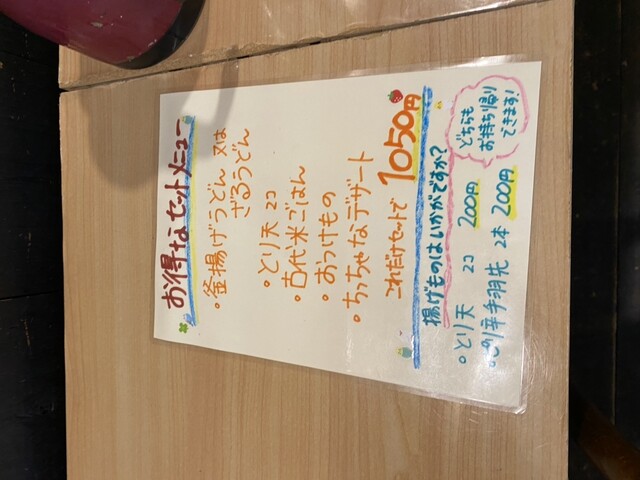 お得なセットメニュー
。釜揚げうどん 又は
ざるうどん
。とり天 2コ
。古代米ごはん
。おつけもの
。ちっちゃなデザート
これだけセットで 1050円
揚げものはいかがですか?
。とり天 2コ 200円
。ピリ辛手羽先 2本 200円
どちらも
お持ち帰り
できます!